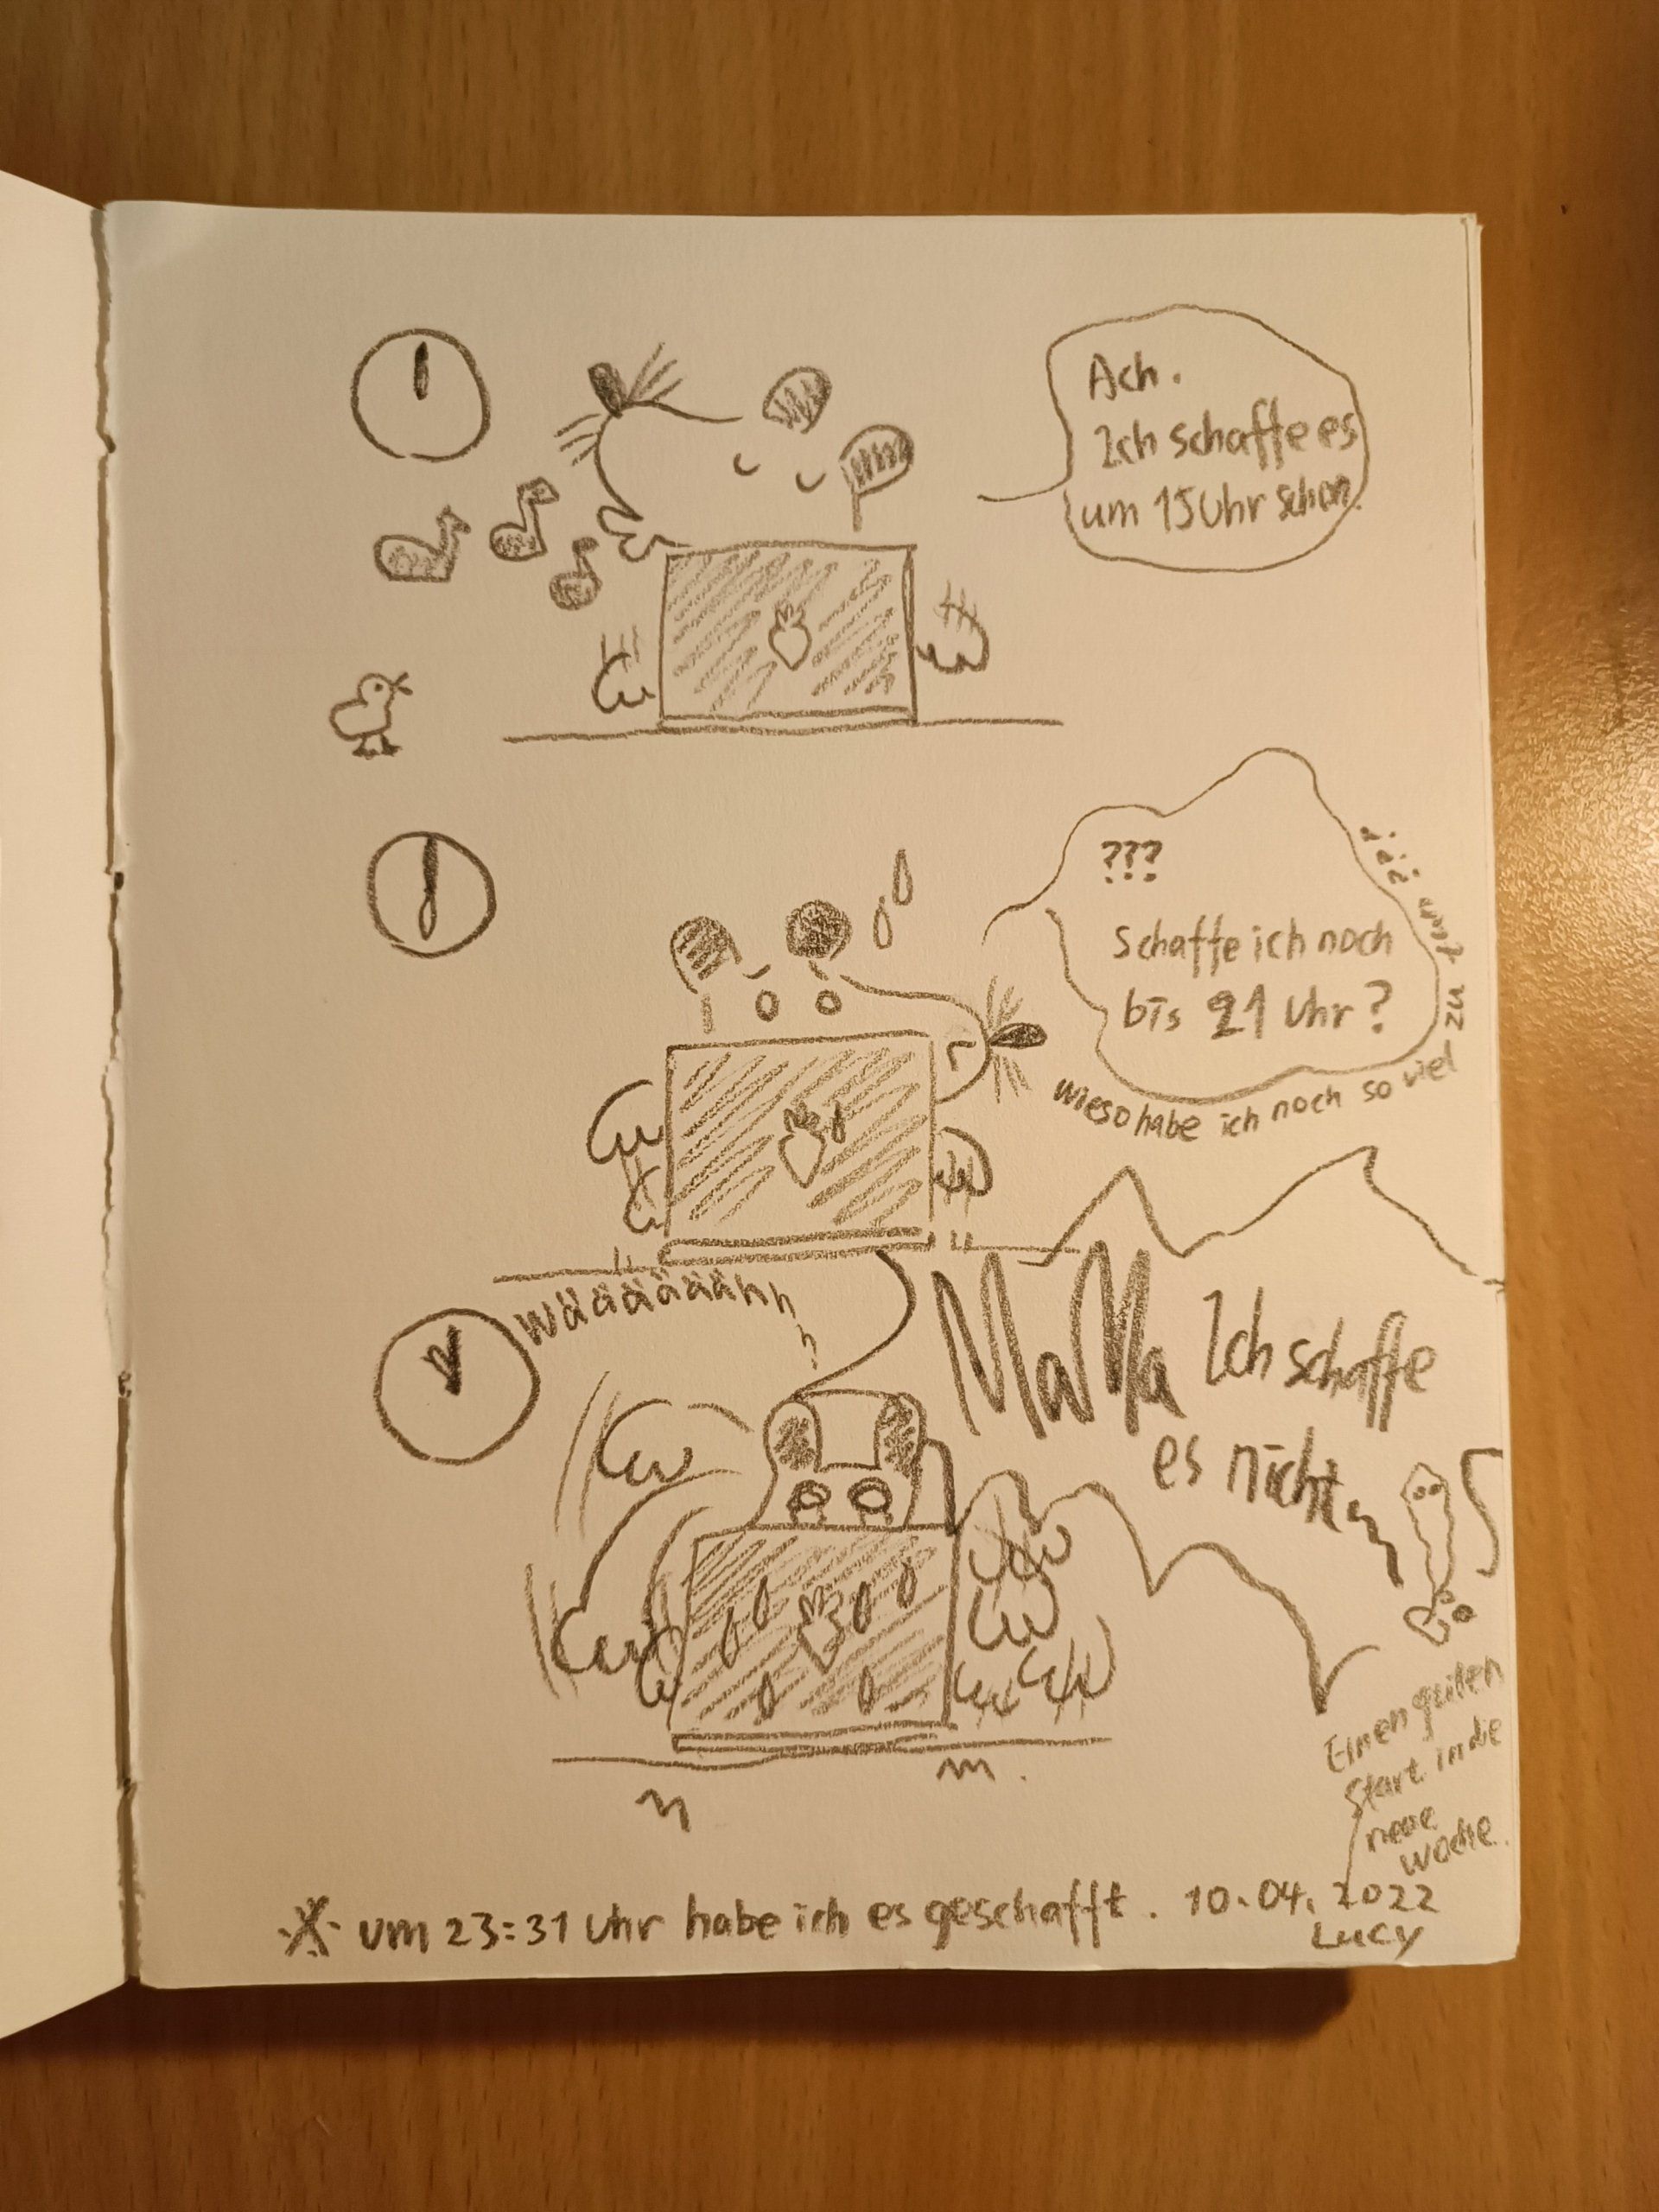 Ach.
Ich schaffe es
um 15 Uhr schon.
???
Schaffe ich noch
bis 21 Uhr?
wieso habe ich noch so viel zu tun???
Wääääääähhh
MaMa Ich schaffe
es nicht
Einen guten
Start in die
neue
Woche.
※ um 23:31 Uhr habe ich es geschafft. 10.04.2022
Lucy